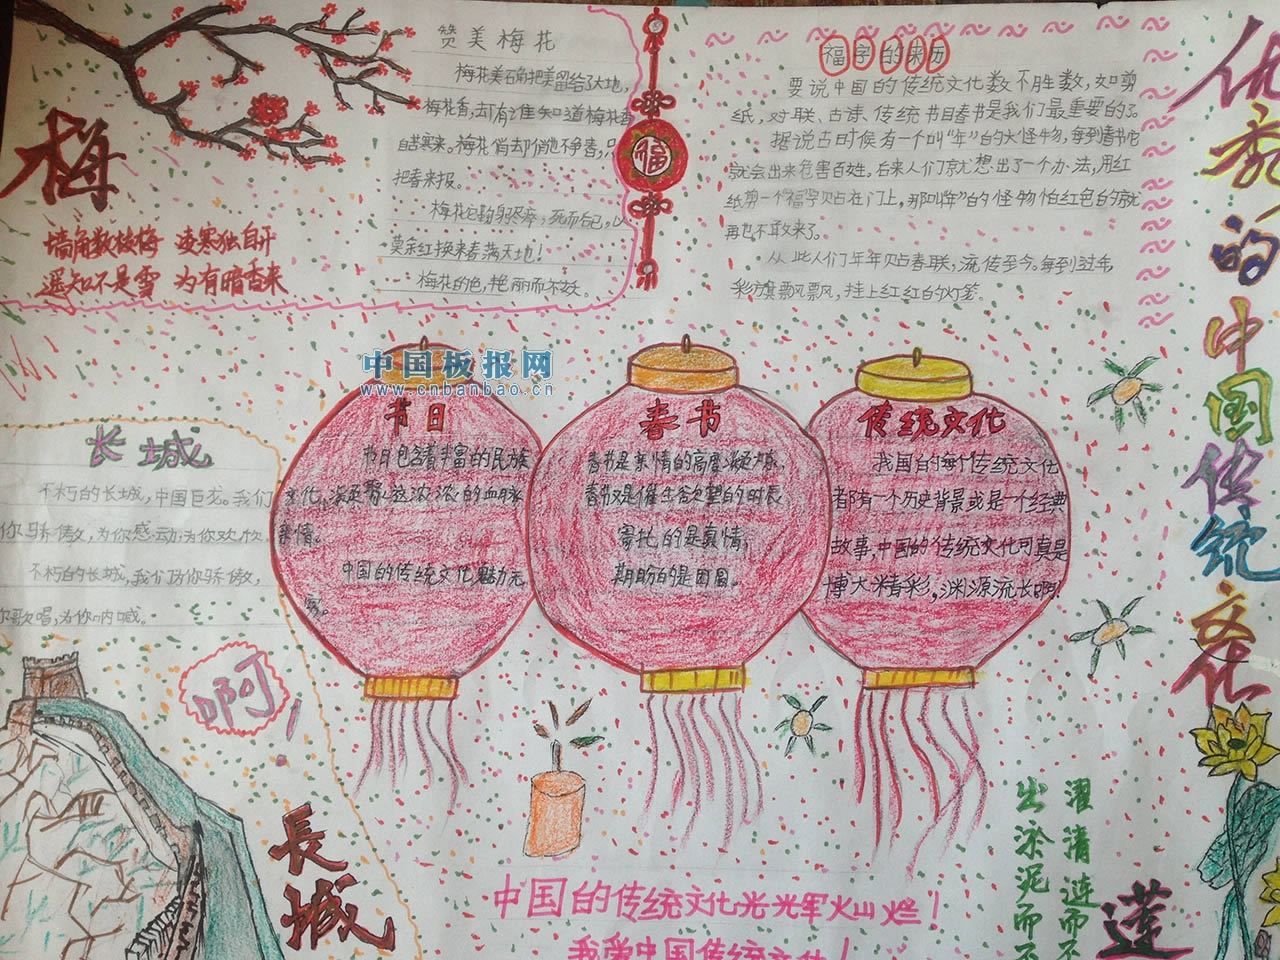 赞美梅花
梅花美石角把美留给了大地，
梅花香，却有谁知道梅花香
自苦寒来。梅花俏去门俏也不争春，只
把春来报。
死而后已，以
莫余红换来春满天地！
梅花的色，艳丽而不妖。
梅
墙角数枝梅 凌寒独自开
遥知不是雪 为有暗香来
福
福字的来历
要说中国的传统文化数不胜数，如剪
纸，对联、古诗、传统节目春节是我们最重要的了。
据说古时候有一个叫“年”的大怪物，每到春节它
就会出来危害百姓。后来人们就想出了一个办法，用红
纸剪一个福字贴在门上，那叫“年”的怪物怕红色的就
再也不敢来了。
从此人们年年贴春联，流传至今。每到过年，
彩旗飘飘，挂上红红的灯笼。
优秀的中国传统文化
中国板报网
www.cnbanbao.cn
长城
不朽的长城，中国巨龙。我们
你骄傲，为你感动为你欢欣。
不朽的长城，我们为你骄傲，
你歌唱，为你呐喊。
啊！
長城
节日
节日包含着丰富的民族
文化，凝聚着这浓浓的血脉
亲情。
中国的传统文化魅力无
穷。
春节
春节是亲情的高度凝聚
春节是催生希望的时辰
寄托的是真情，
期盼的是团圆。
传统文化
我国的每个传统文化
都有一个历史背景或是一个经典
故事，中国的传统文化可真是
博大精彩，渊源流长啊！
中国的传统文化光光军火山烂！
我爱中国传统文化！
出淤泥而不
濯清涟而不
莲